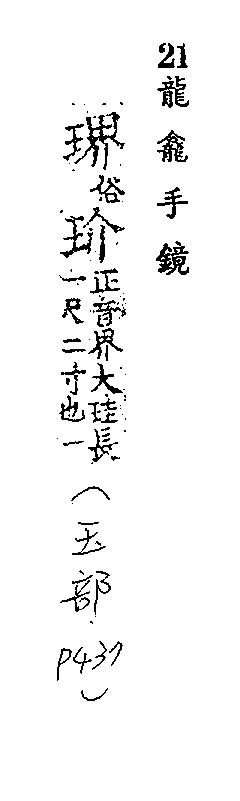 21龍龕手鏡
堺俗玠正音界大珪長
一尺二寸也一
(玉部.P437)